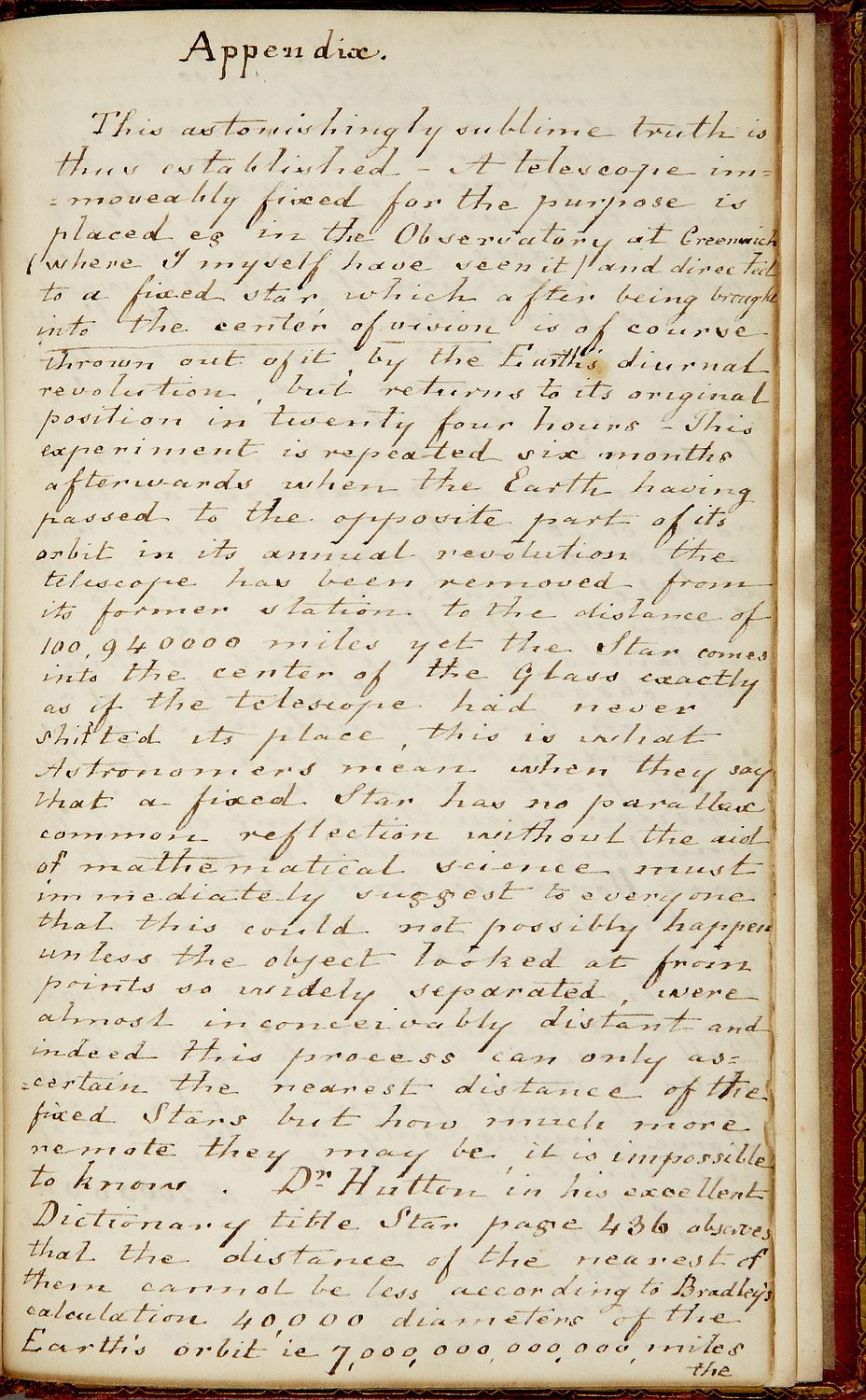 Appendix.
This astonishingly sublime truth is
thus established - A telescope im=
=moveably fixed for the purpose is
placed eg in the Observatory at Greenwich
(where I myself have seen it) and directed
to a fixed star, which after being brought
into the center of vision is of course
thrown out of it, by the Earth's diurnal
revolution, but returns to its original
position in twenty four hours - This
experiment is repeated six months
afterwards when the Earth having
passed to the opposite part of its
orbit in its annual revolution the
telescope has been removed from
its former station to the distance of
100,940000 miles yet the Star comes
into the center of the Glass exactly
as if the telescope had never
shifted its place, this is what
Astronomers mean when they say
that a fixed Star has no parallax
common reflection without the aid
of mathematical science must
immediately suggest to everyone
that this could not possibly happen
unless the object looked at from
points so widely separated, were
almost inconceivably distant and
indeed this process can only as=
=certain the nearest distance of the
fixed Stars but how much more
remote they may be, it is impossible
to know. Dr Hutton in his excellent
Dictionary title Star page 436 observes
that the distance of the nearest of
them cannot be less according to Bradley's
calculation 40,000 diameters of the
Earth's orbit ie 7,000,000,000,000, miles
the